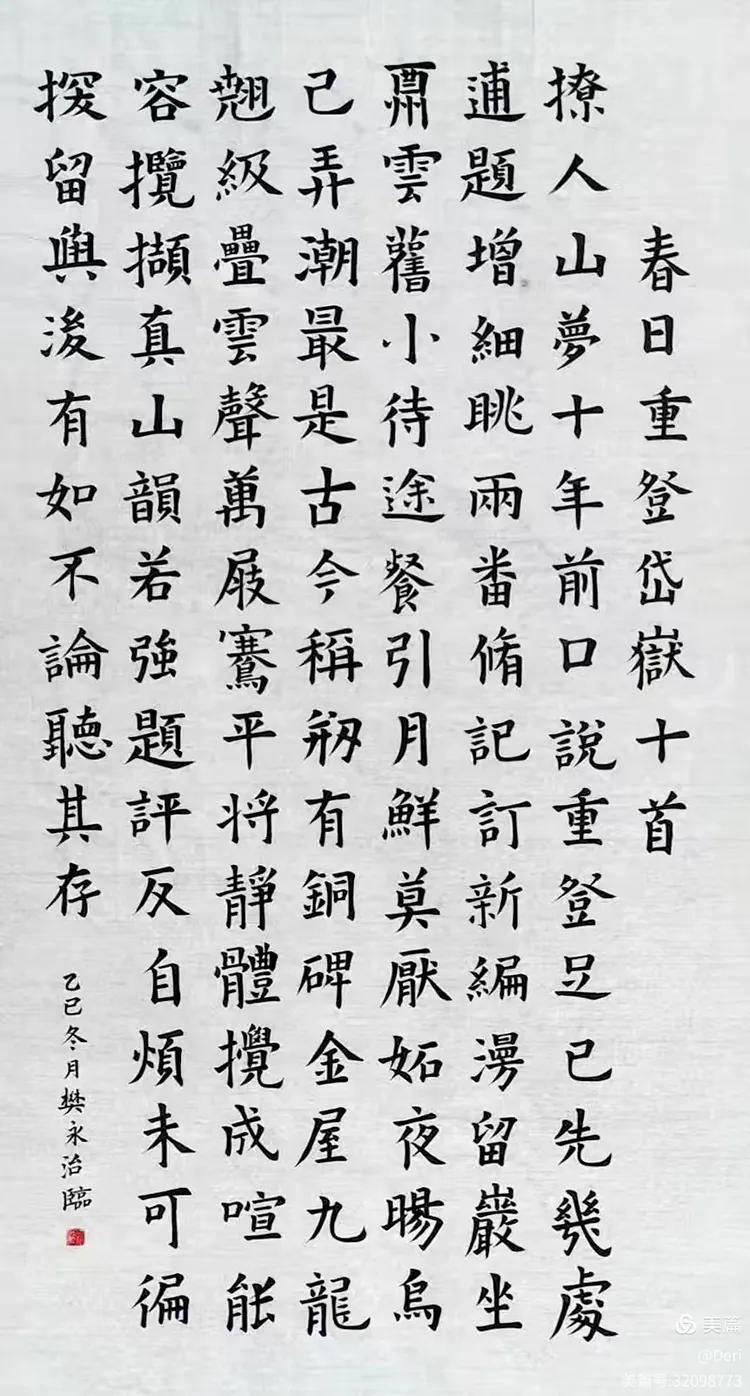 春日重登岱嶽十首
撩人山夢十年前口說重登足已先幾處
逋題增細眺兩番脩記訂新編漫留巖坐
雲舊小待途餐引月鮮莫厭妬夜暘烏
己弄潮最是古今稱剏有銅碑金屋九龍
翹級疊雲聲萬屐鶱平将靜體攪成喧能
容攬擷真山韻若強題評反自煩未可徧
留與後有如不論聽其存
乙巳冬月樊永治臨
美篇
@Deri
美篇号:32098773